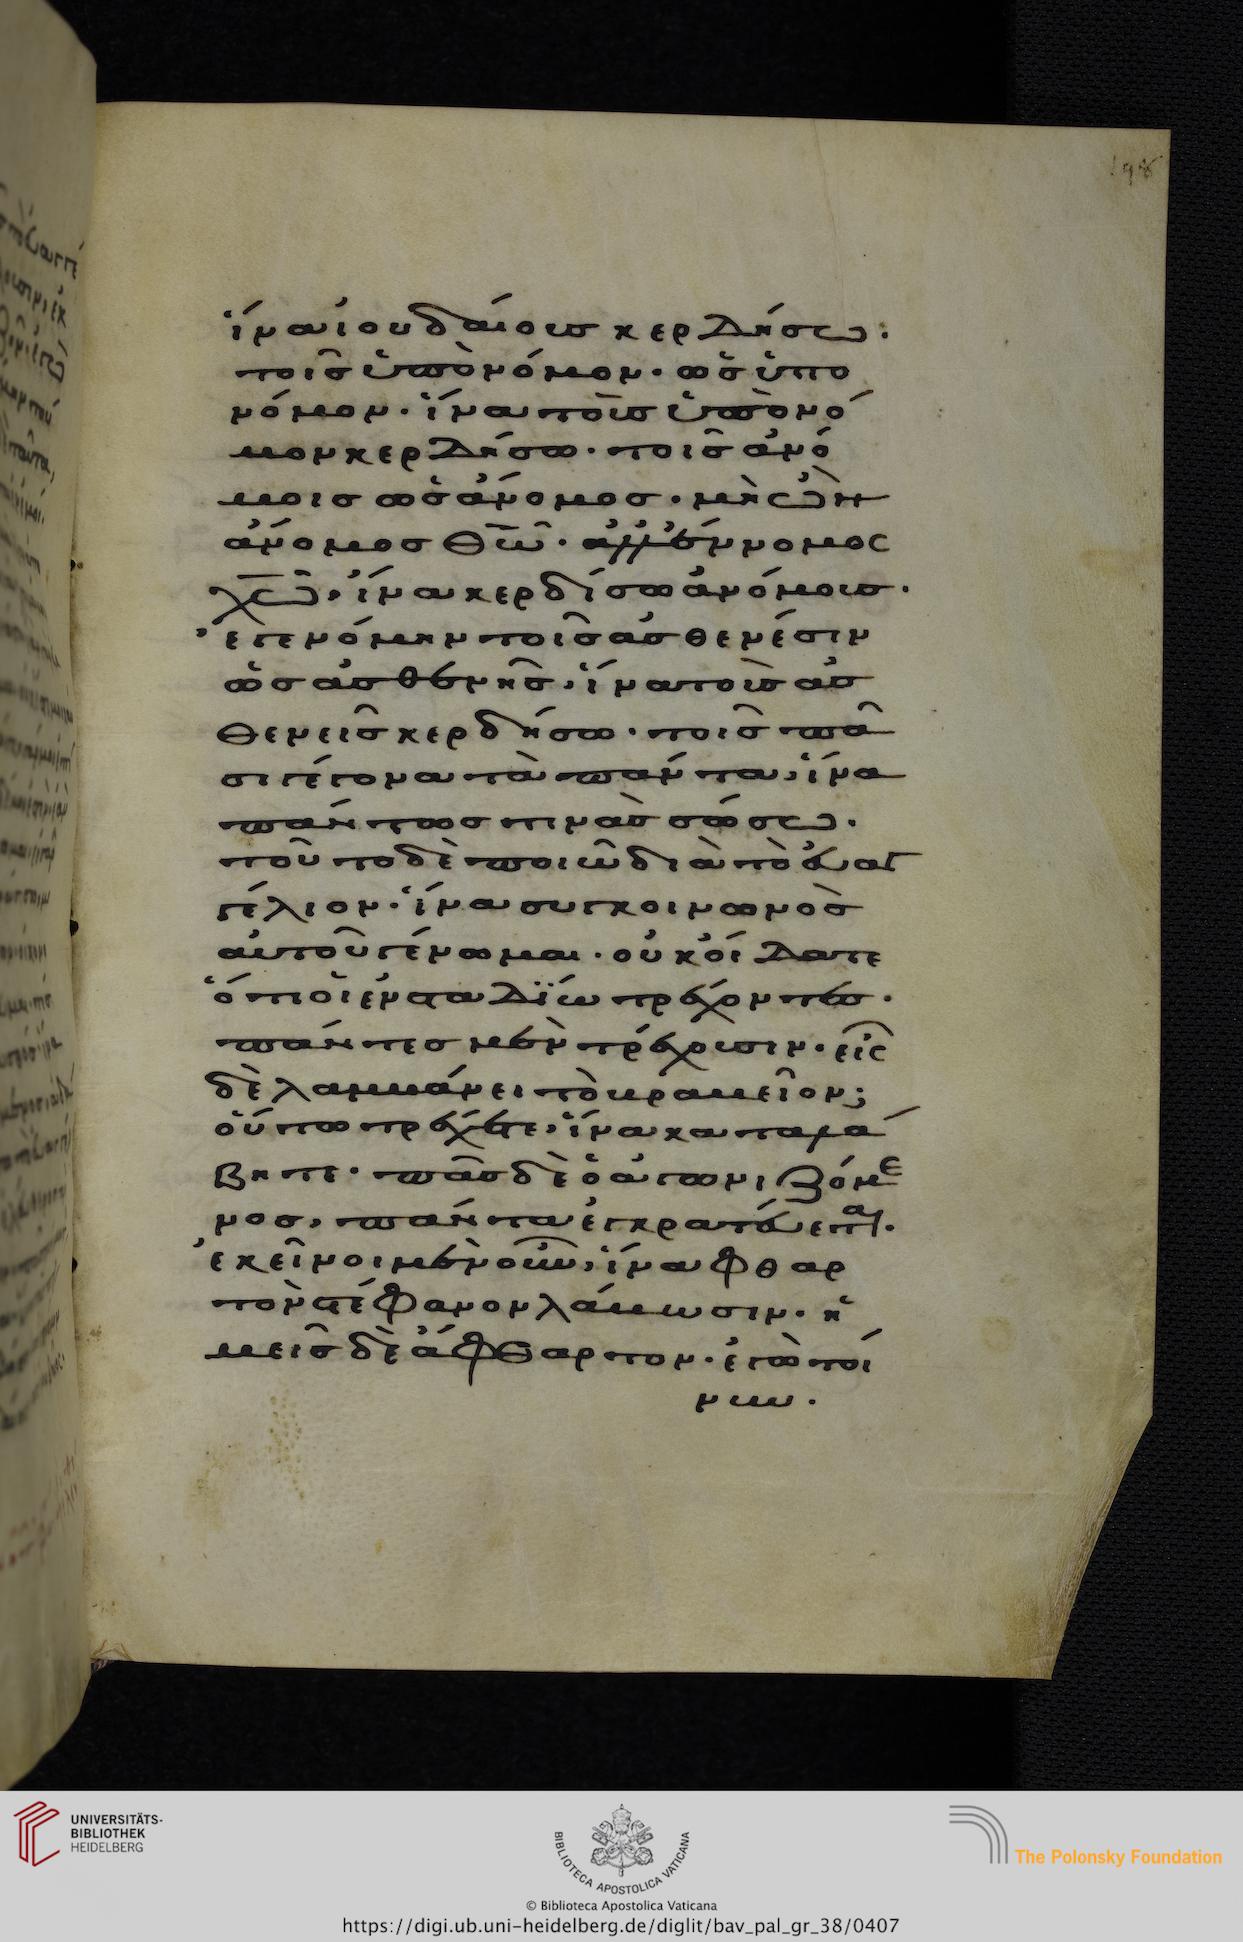 198
ἵνα ἰουδαίους κερδήσω.
τοῖς ὑπὸ νόμον· ὡς ὑπὸ
νόμον· ἵνα τοὺς ὑπὸ νό
μον κερδήσω· τοῖς ἀνό
μοις ὡς ἄνομος· μὴ ὢν
ἄνομος θω̅· ἀλλ' ἔννομος
χω̅, ἵνα κερδίσω ἀνόμους.
ἐγενόμην τοῖς ἀσθενέσιν
ὡς ἀσθενὴς, ἵνα τοὺς ἀσ
θενεῖς κερδήσω· τοῖς πᾶ
σι γέγονα τὰ πάντα, ἵνα
πάντως τινὰς σώσω.
τοῦτο δὲ ποιῶ διὰ τὸ εὐαγ
γέλιον· ἵνα συγκοινωνὸς
αὐτοῦ γένωμαι· οὐκ οἴδατε
ὅτι οἱ ἐν σταδΐω τρέχοντες.
πάντες μὲν τρέχουσιν· εἷς
δὲ λαμβάνει τὸ βραβεῖον;
οὕτω τρέχετε, ἵνα καταλά
βητε· πᾶς δὲ ὁ ἀγωνιζόμε
νος, πάντα ἐγκρατεύεται.
ἐκεῖνοι μὲν οὖν, ἵνα φθαρ
τὸν στέφανον λάβωσιν· ἡ
μεῖς δὲ ἄφθαρτον· ἐγὼ τοί
νυν.
UNIVERSITÄTS-
BIBLIOTHEK
HEIDELBERG
BIBLIOTECA APOSTOLICA VATICANA
The Polonsky Foundation
© Biblioteca Apostolica Vaticana
https://digi.ub.uni-heidelberg.de/diglit/bav_pal_gr_38/0407